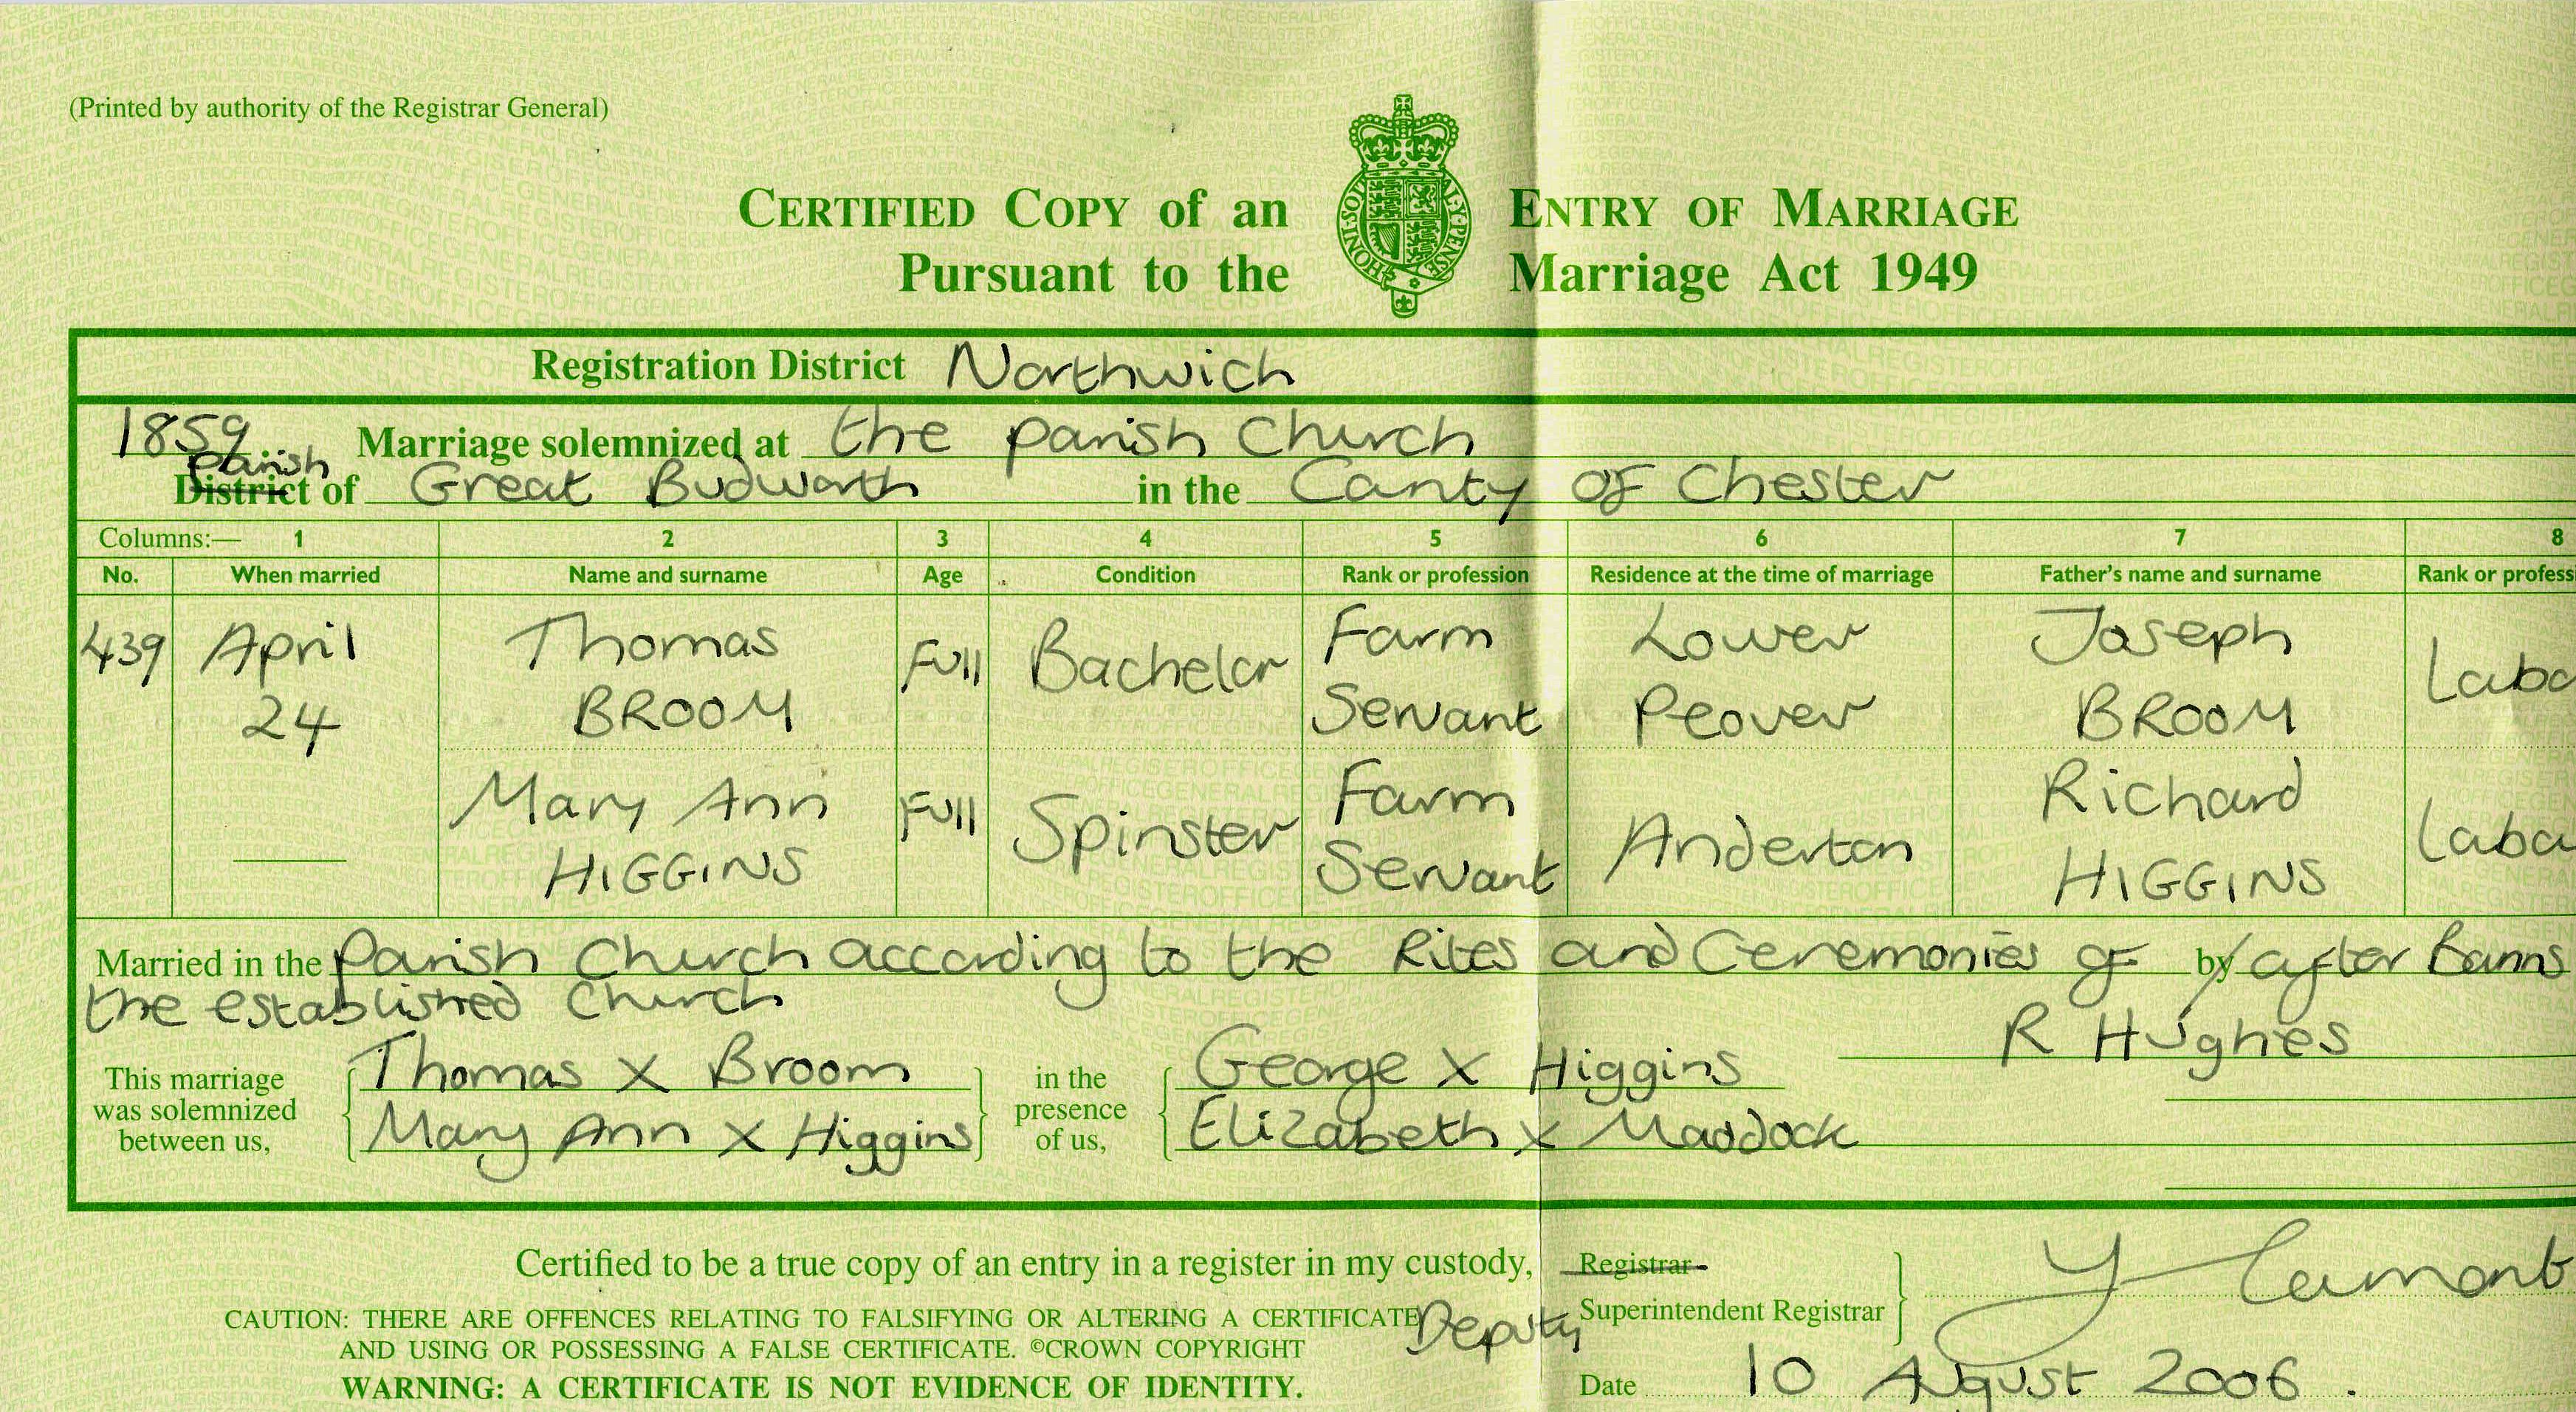 (Printed by authority of the Registrar General)
CERTIFIED COPY of an ENTRY OF MARRIAGE
Pursuant to the Marriage Act 1949
HONI·SOIT AL·Y·PENSE
Registration District Northwich
1859 Marriage solemnized at the parish Church
Parish
District of Great Budworth in the County of Chester
Columns:— 1 2 3 4 5 6 7 8
No. When married Name and surname Age Condition Rank or profession Residence at the time of marriage Father's name and surname Rank or profess
439 April Thomas Full Bachelor Farm Lower Joseph Labo
24 BROOM Servant Peover BROOM
Mary Ann Full Spinster Farm Anderton Richard Labo
HIGGINS Servant HIGGINS
Married in the Parish Church according to the Rites and Ceremonies of by after Banns
the established Church
R Hughes
This marriage was solemnized between us, Thomas X Broom in the presence of us, George X Higgins
Mary Ann X Higgins Elizabeth X Maddock
Certified to be a true copy of an entry in a register in my custody, Registrar
CAUTION: THERE ARE OFFENCES RELATING TO FALSIFYING OR ALTERING A CERTIFICATE Deputy Superintendent Registrar
AND USING OR POSSESSING A FALSE CERTIFICATE. ©CROWN COPYRIGHT
WARNING: A CERTIFICATE IS NOT EVIDENCE OF IDENTITY. Date 10 August 2006.